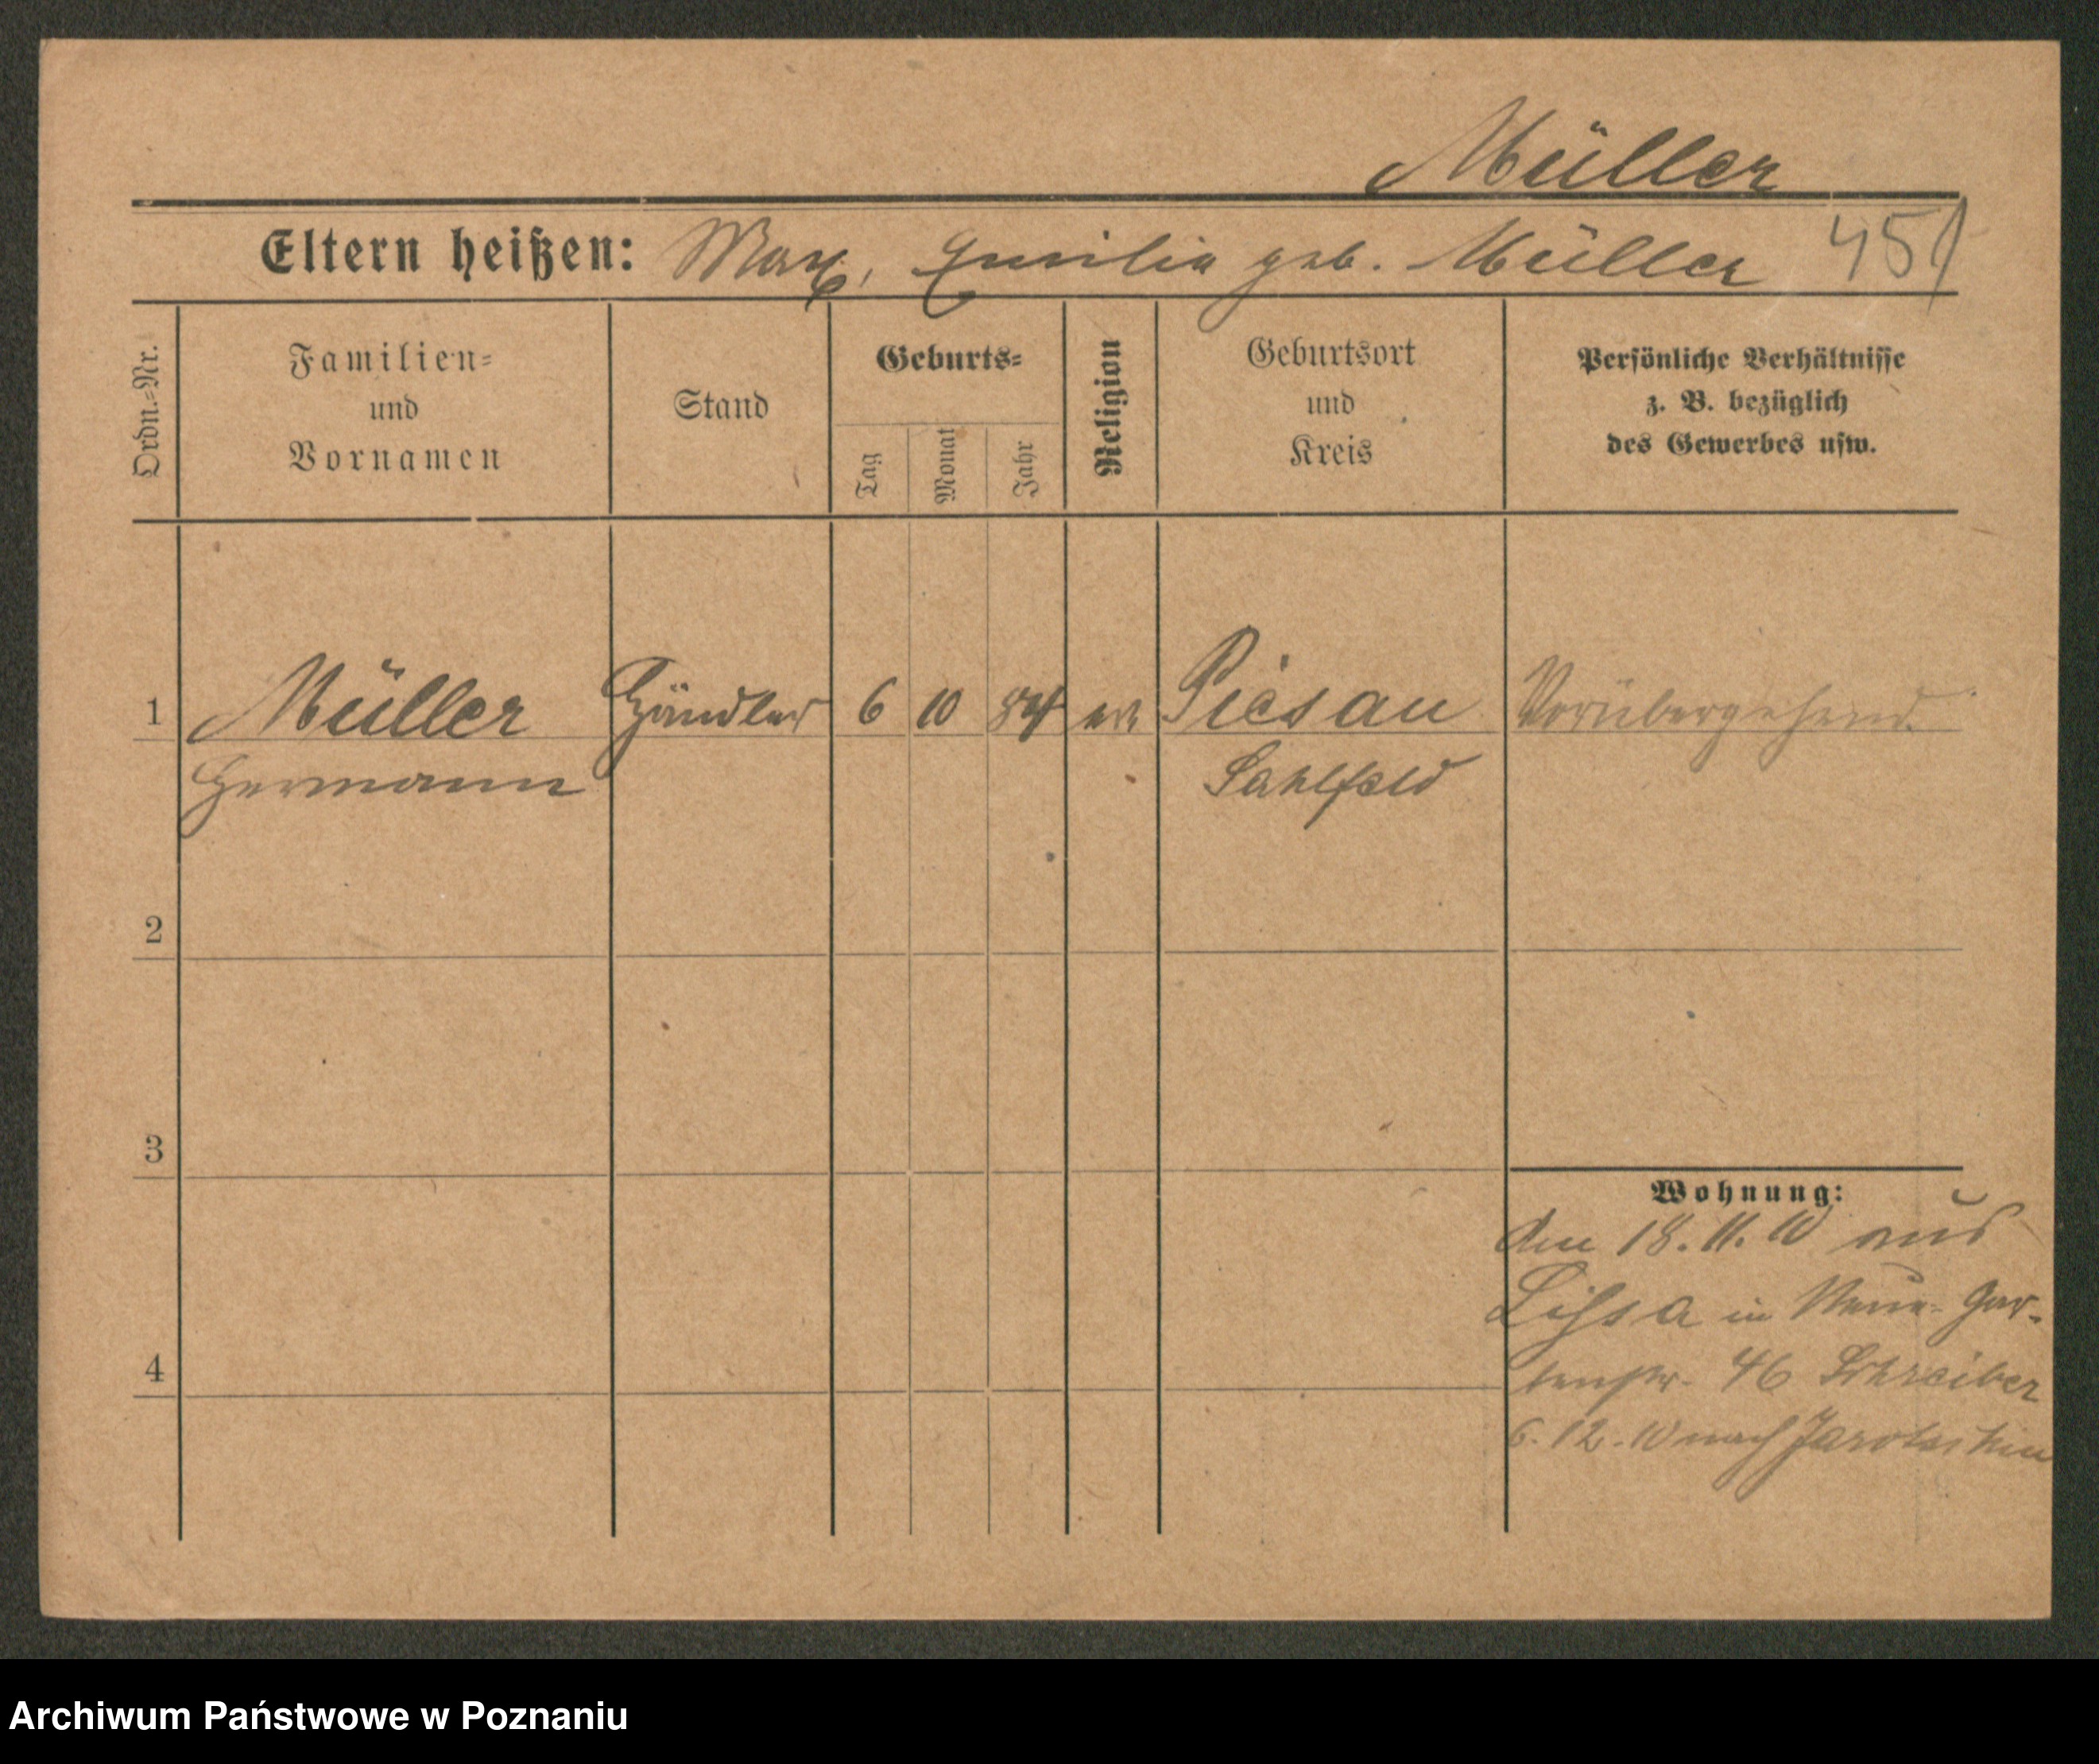 Müller
Eltern heißen: Max, Emilie geb. Müller 451
Ordn.-Nr.
Familien-
und
Vornamen
Stand
Geburts-
Tag
Monat
Jahr
Religion
Geburtsort
und
Kreis
Persönliche Verhältnisse
z. B. bezüglich
des Gewerbes usw.
1 Müller Händler 6 10 84 ev Piesau Vorübergehend.
Hermann Sahlfeld
2
3
Wohnung:
Am 18.11.10 aus
Lissa in Neue- Gar-
4
tenstr. 46 Schreiber
6.12.10 nach Jarotschin
Archiwum Państwowe w Poznaniu